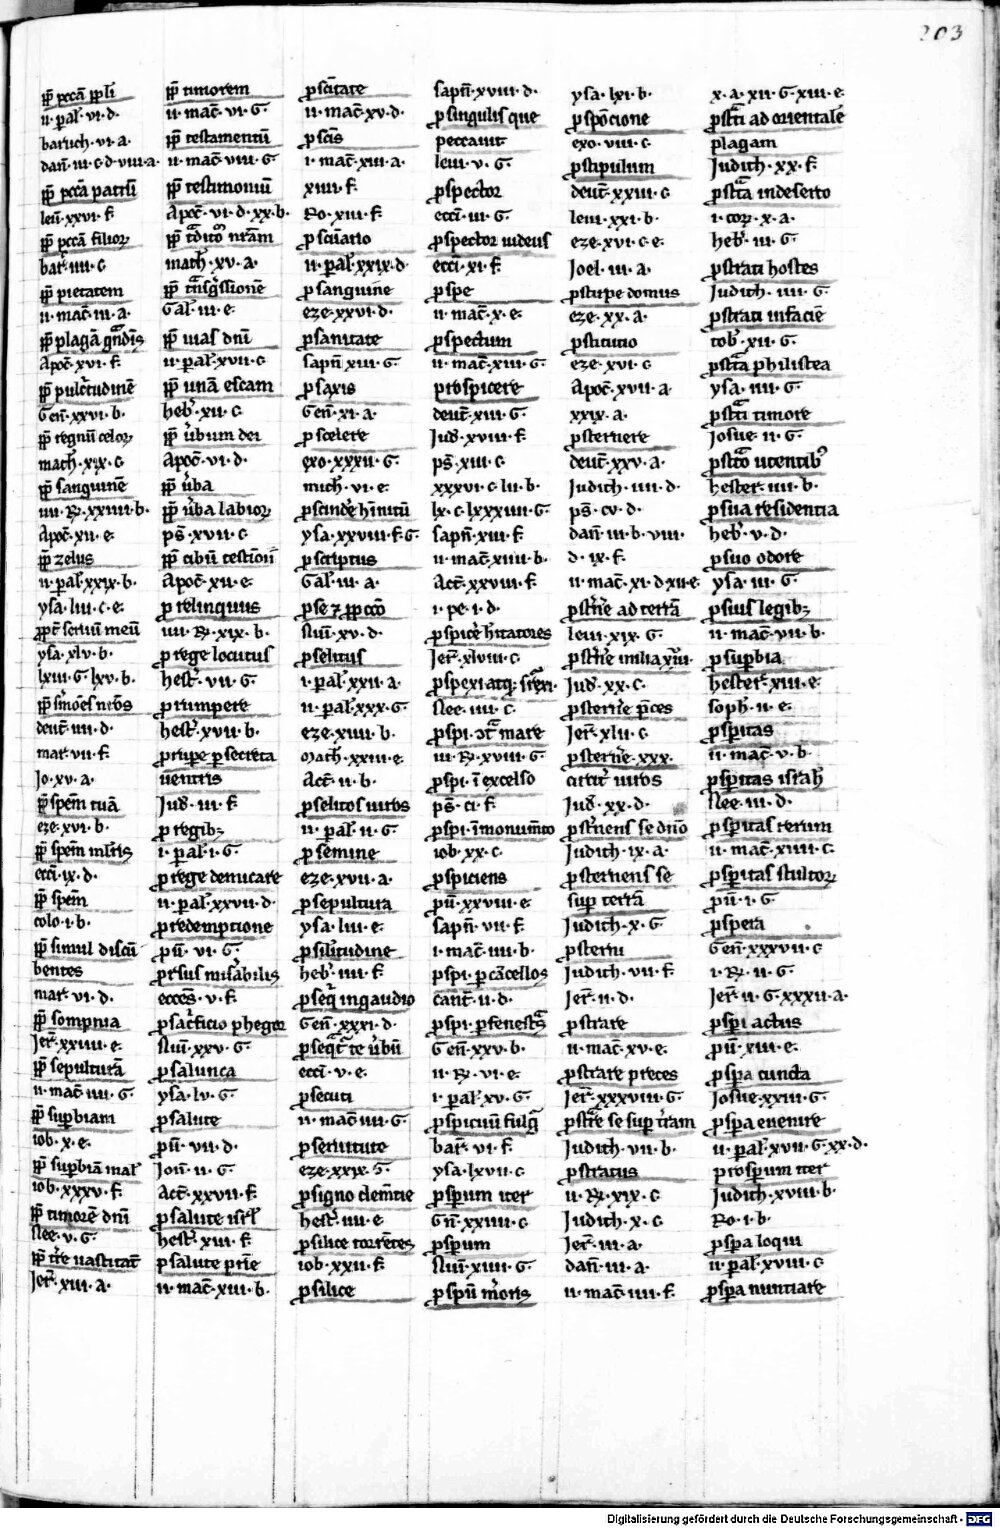 203
ꝓpꝉ pccā ppli
ii · pal · vi · d ·
baruch · vi · a ·
dan̄ · iii · c · d · viii · a ·
pp̄ pccā patrū
leui · xxvi · f
pp̄ pccā filioꝝ
bar · iiii · c
pp̄ pietatem
ii · mac̄ · iii · a ·
pp̄ plagā gͣndis
Apoc̄ · xvi · f
pp̄ pulcͬtudinē
Gen̄ · xxvi · b ·
pp̄ regnū celoꝝ
math · xix · c
pp̄ sanguinē
iiii · R · xxiiii · b ·
Apoc̄ · xii · e ·
pp̄ zelus
ii · pal · xxix · b ·
ysa · liii · c · e ·
ꝓpt̄ seruū meū
ysa · xlv · b ·
lxiii · G · lxv · b ·
pp̄ sm̄ōes nr̄os
deut̄ · iiii · d ·
mar · vii · f ·
Jo · xv · a ·
pp̄ spem̄ tuā
eze · xvi · b ·
pp̄ spem̄
ecci · ix · d ·
pp̄ spem̄
colo · i · b ·
pp̄ simul discū
bentes
mar · vi · d ·
pp̄ sompnia
Jer̄ · xxiiii · e ·
pp̄ sepulturā
ii · mac̄ · iiii · G ·
pp̄ supbiam
iob · x · e ·
pp̄ supbiā mal
iob · xxxv · f ·
pp̄ timorē dn̄i
Nee · v · G ·
pp̄ tr̄e uastitat̄
Jer̄ · xiii · a ·
pp̄ timorem
ii · mac̄ · vi · G ·
pp̄ testamentū
ii · mac̄ · viii · G
pp̄ testimoniū
Apoc̄ · vi · d · xx · b ·
pp̄ tͣditōꝫ nr̄am
math · xv · a ·
pp̄ tͣnsgͬssionē
Gal · iii · e ·
pp̄ uias dn̄i
ii · pal · xvii · c
pp̄ unā escam
heb · xii · c
pp̄ ubum dei
Apoc̄ · vi · d ·
pp̄ uba
pp̄ uba labioꝝ
ps̄ · xvii · c
pp̄ cibū testiōn
Apoc̄ · xii · e ·
ꝓ relinquus
iiii · R · xix · b ·
ꝓ rege locutus
hest̄ · vii · G ·
ꝓrumpere
hest̄ · xvii · b ·
ꝓrupe p secreta
uentris
Jud · iii · f ·
ꝓ regibꝫ
i · pal · i · G ·
ꝓ rege demicare
ii · pal · xxvii · d ·
ꝓ redemptione
pu · vi · G ·
ꝓrsus misabilis
ecces · v · f ·
ꝓsacficio phegor
Nuu · xxv · G ·
ꝓsalunca
ysa · lv · G ·
ꝓsalute
pu · vii · d ·
Jon̄ · ii · G ·
Act̄ · xxvii · f ·
ꝓsalute isrl
hest̄ · xiii · f ·
ꝓsalute pr̄ie
ii · mac̄ · xiii · b ·
ꝓscitate
ii · mac̄ · xv · d ·
ꝓscis
i · mac̄ · xiii · a ·
xiiii · f ·
Ro · xiii · f ·
ꝓ scuario
ii · pal · xxix · d ·
ꝓsanguine
eze · xxvi · d ·
ꝓsanitate
sapn̄ · xiii · G ·
ꝓsaxis
Gen̄ · xi · a ·
ꝓscelere
exo · xxxii · G ·
mich · vi · e ·
ꝓscinde hinnitū
ysa · xxviii · f · G ·
ꝓscriptus
Gal · iii · a ·
ꝓse ⁊ ꝓpcō
Nuu · xv · d ·
ꝓselitus
i · pal · xxii · a ·
ii · pal · xxx · G ·
eze · xiiii · b ·
Math · xxiii · e ·
Act̄ · ii · b ·
ꝓselitos uiros
ii · pal · ii · G ·
ꝓsemine
eze · xvii · a ·
ꝓsepultura
ysa · liii · e ·
ꝓsilitudine
heb · iiii · f ·
ꝓseq̄ ingaudio
Gen̄ · xxxi · d ·
ꝓseqͣt te ubū
ecci · v · e ·
ꝓsecuti
ii · mac̄ · iiii · G ·
ꝓseruitute
eze · xxix · G ·
ꝓsigno clem̄tie
hest̄ · iiii · e
ꝓsilice torrētes
iob · xxii · f ·
ꝓsilice
sapn̄ · xviii · d ·
ꝓsingulis que
peccauit
leui · v · G ·
ꝓspector
ecci · iii · G ·
ꝓspector uidens
ecci · xi · f ·
ꝓspe
ii · mac̄ · x · e ·
ꝓspectum
ii · mac̄ · xiii · G ·
prospicere
deut̄ · xiii · G ·
Jud · xviii · f ·
ps̄ · xiii · c ·
xxxvi · c · lii · b ·
lx · c · lxxxiiii · G ·
sapn̄ · xiii · f ·
ii · mac̄ · xiiii · b ·
Act̄ · xxviii · f ·
i · pe · i · d ·
ꝓspice hitatores
Jer̄ · xlviii · c
ꝓspexi atqꝫ
Nee · iiii · c ·
ꝓspi · ꝯtͣ mare
iii · R · xviii · G ·
ꝓspi · ī excelso
ps̄ · ci · f ·
ꝓspi · ī monumto
iob · xx · c ·
ꝓspiciens
pu · xxviii · e ·
sapn̄ · vii · f ·
i · mac̄ · iiii · b ·
ꝓspi · p cācellos
cant̄ · ii · d ·
ꝓspi · p fenestͣs
Gen̄ · xxv · b ·
ii · R · vi · e ·
i · pal · xv · G ·
ꝓspicuū fulgͣ
bar · vi · f ·
ysa · lxvii · c
ꝓspum iter
Gn̄ · xxiiii · c
ꝓspum
Nuu · xiiii · G ·
ꝓspu moris
ysa · lxi · b ·
ꝓ spōcione
exo · viii · c
ꝓstipulum
deut̄ · xxiii · c
leui · xxi · b ·
eze · xvi · c · e ·
Joel · iii · a ·
ꝓstupe domus
eze · xx · a ·
ꝓstitutio
eze · xvi · c
Apoc̄ · xvii · a
xxix · a ·
ꝓsternere
deut̄ · xxv · a ·
Judich · iiii · d ·
ps̄ · cv · d ·
dan̄ · iii · b · viii ·
d · ix · f ·
ii · mac̄ · xi · d · xii · e
ꝓstne ad terrā
leui · xix · G ·
ꝓstne imilia
Jud · xx · c ·
ꝓsterne pces
Jer̄ · xlii · c
ꝓsterne · xxx ·
uiros
Jud · xx · d ·
ꝓstnens se dn̄o
Judich · ix · a ·
ꝓsternens se
sup terrā
Judich · x · G ·
ꝓsterni
Judich · vii · f
Jer̄ · ii · d ·
ꝓstrare
ii · mac̄ · xv · e ·
ꝓstrare preces
Jer̄ · xxxviii · G ·
ꝓstre se sup tram
Judich · vii · b ·
ꝓstratus
ii · R · xix · c
Judich · x · c
Jer̄ · iii · a ·
dan̄ · iii · a ·
ii · mac̄ · iiii · f ·
x · a · xii · G · xiii · e ·
ꝓstͣti ad orientalē
plagam
Judich · xx · f ·
ꝓstͣta indeserto
i · cor · x · a ·
heb · iii · G ·
ꝓstrati hostes
Judich · iiii · G ·
ꝓstrati infaciē
tob · xii · G ·
ꝓstͣta philistea
ysa · iiii · G ·
ꝓstͣti timore
Josue · ii · G ·
ꝓstͣto utentibꝰ
hester · iiii · b ·
ꝓsua residentia
heb · v · d ·
ꝓsuo odore
ysa · iii · G ·
ꝓsuis legibꝫ
ii · mac̄ · vii · b ·
ꝓsupbia
hester · xiii · e ·
soph · ii · e ·
ꝓspitas
ii · mac̄ · v · b ·
ꝓspitas israh
Nee · iii · d ·
ꝓspitas rerum
ii · mac̄ · xiiii · c
ꝓspitas stultoꝝ
pu · i · G
ꝓspera
Gen̄ · xxxvii · c
i · R · ii · G ·
Jer̄ · ii · G · xxxii · a ·
ꝓspi actus
pu · xiii · e ·
ꝓspa cuncta
Josue · xxiii · G ·
ꝓspa euenire
ii · pal · xvii · G · xx · d ·
prospum iter
Judich · xviii · b ·
Ro · i · b ·
ꝓspa loqui
ii · pal · xviii · c
ꝓspa nuntiare
Digitalisierung gefördert durch die Deutsche Forschungsgemeinschaft - DFG